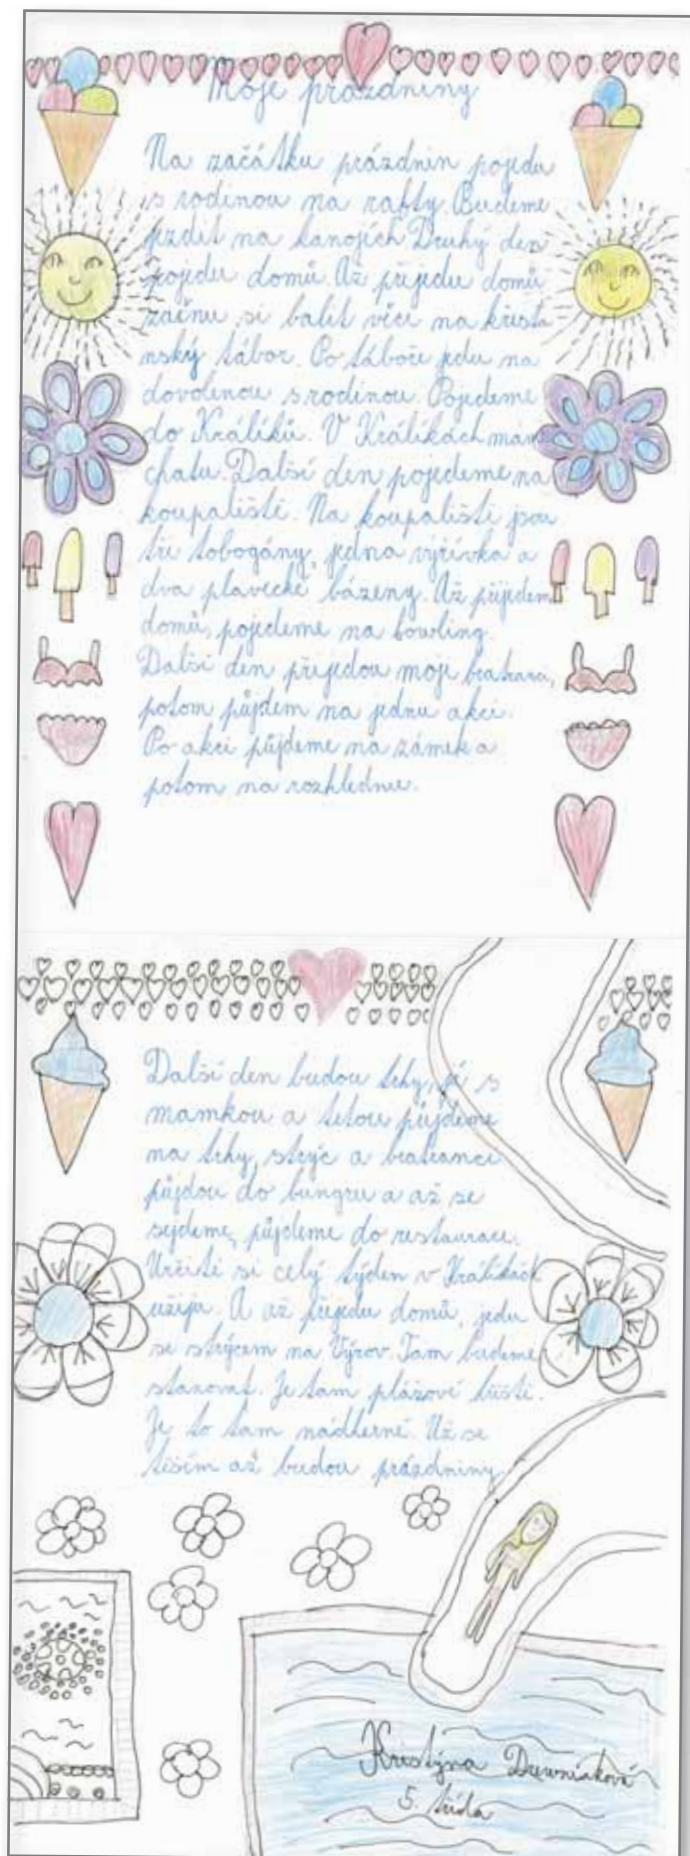 Moje prázdniny
Na začátku prázdnin pojedu
s rodinou na rafty. Budeme
jezdit na kanojích. Druhý den
pojedu domů. Až přijedu domů
začnu si balit věci na křesťa
nský tábor. Po táboře jedu na
dovolenou s rodinou. Pojedeme
do Králíků. V Králíkách mám
chatu. Další den pojedeme na
koupaliště. Na koupališti jsou
tři tobogány, jedna vyřívka a
dva plavecké bázeny. Až přijedem
domů, pojedeme na bowling.
Další den přijedou moji bratranci,
potom půjdem na jednu akci.
Po akci půjdeme na zámek a
potom na rozhlednu.
Další den budou trhy, já s
mamkou a tetou půjdeme
na trhy, strýc a bratranci
půjdou do bungru a až se
sejdeme, půjdeme do restaurace.
Určitě si celý týden v Králíkách
užiju. A až přijedu domů, jedu
se strýcem na Výrov. Tam budeme
stanovat. Je tam plážové hřiště.
Je to tam nádherné. Už se
těším až budou prázdniny
Kristýna
5. třída